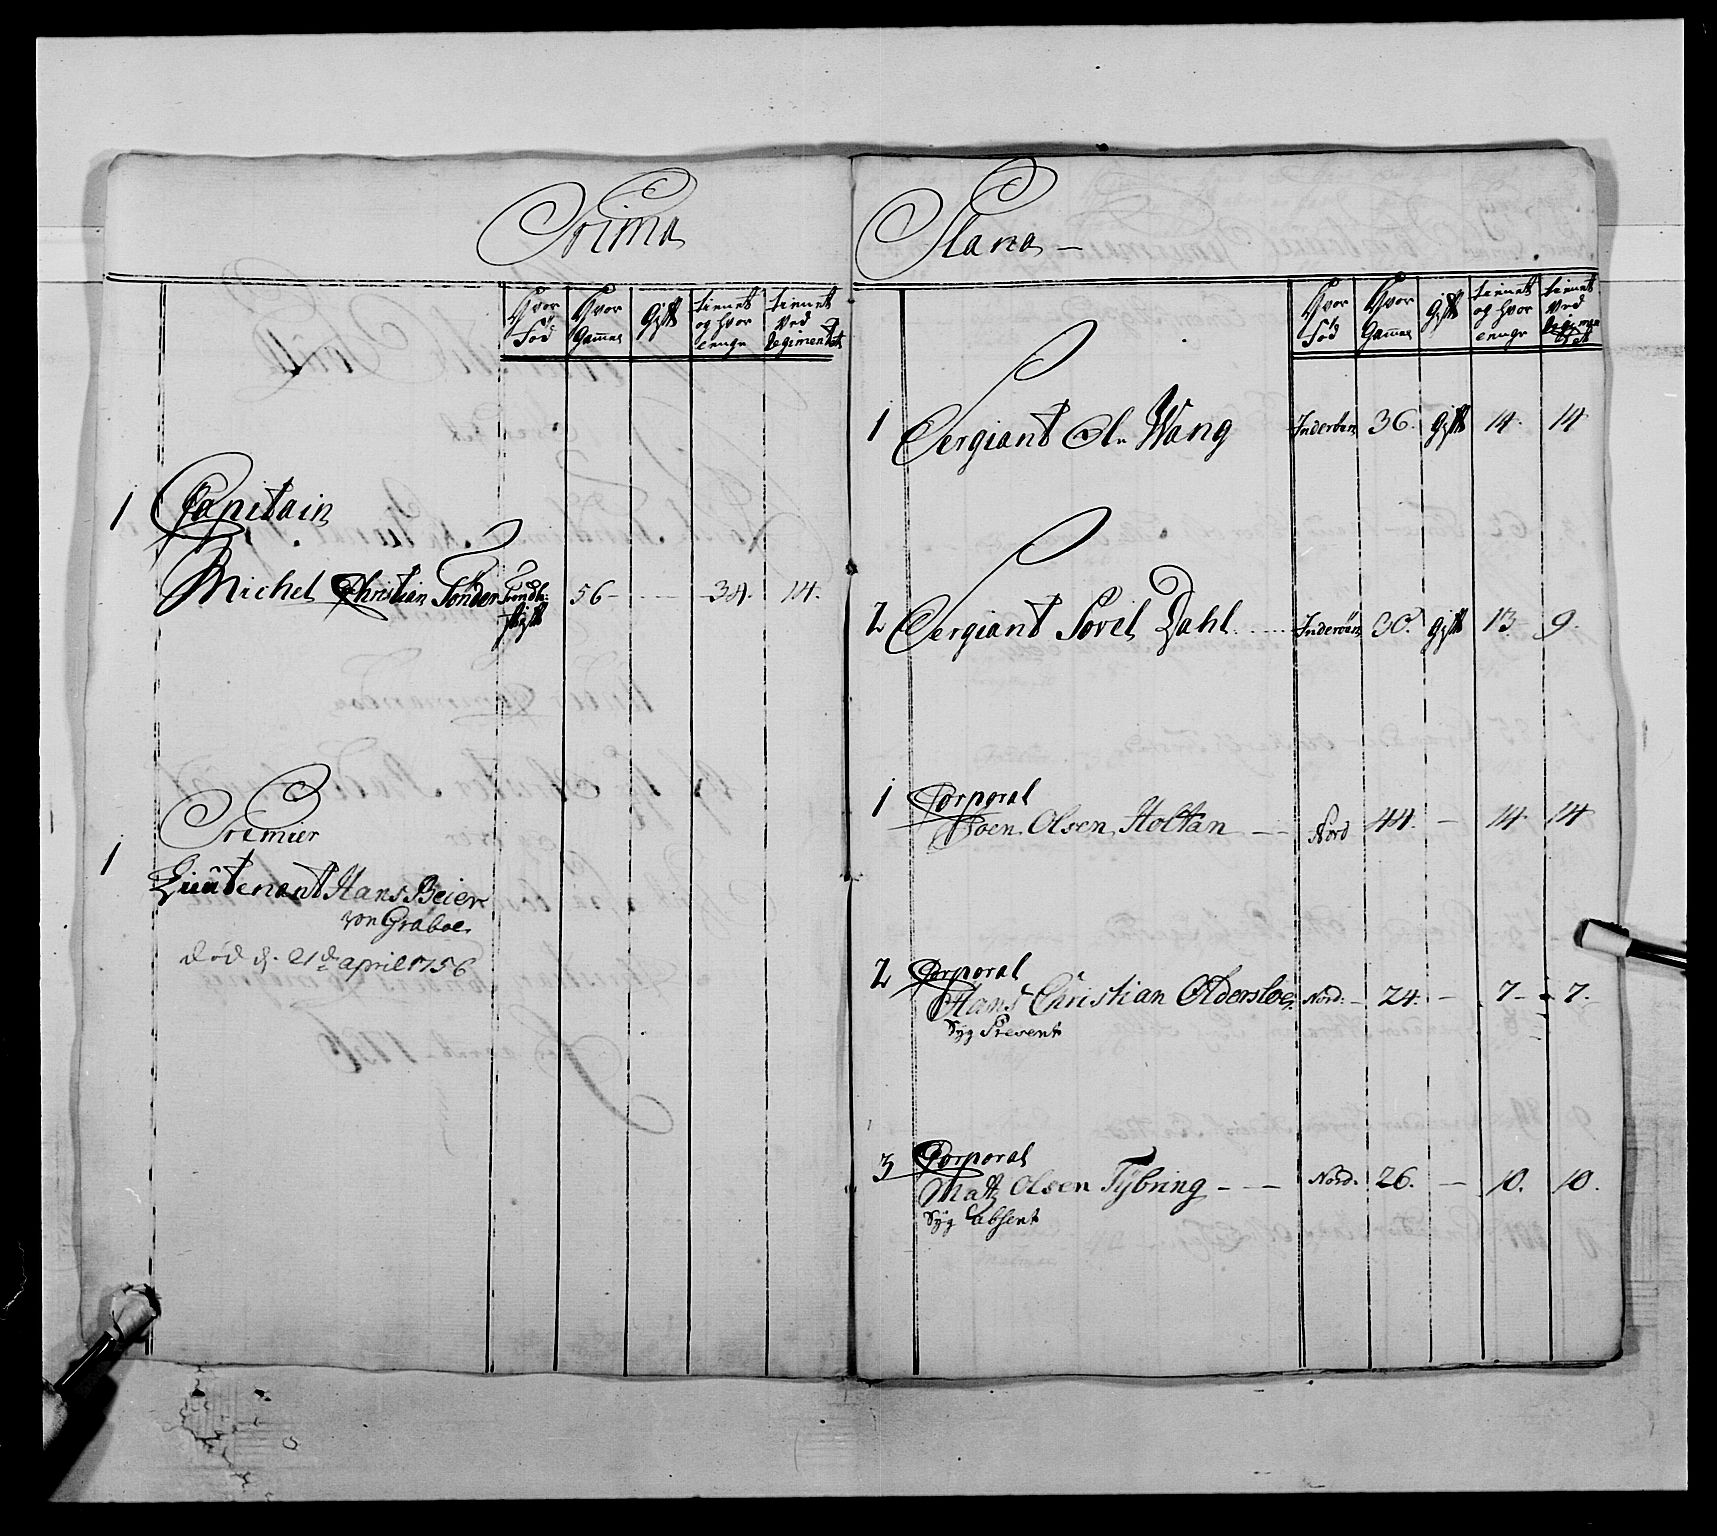 Prima
Hvor Fød
Hvor Gammel
Gift
tienet og hvor lenge
tienet Ved Regimentet
1 Capitain
Michel Christian Tønder Trondh: stift 56 - - - 38. 14.
Premier
1 Lieutenant Hans Beier
von Graboe
død d. 21de april 1756
Plana —
Hvor Fød
Hvor Gammel
Gift
tienet og hvor lenge
tienet Ved Regimentet
1 Sergiant Ol: Wang 36. Gift 14. 14
2 Sergiant Sovel Dahl Inderöen 30. Gift 13 9.
1 Corporal
Joen Olsen Holtan — Nord 44. — 14. 14
2 Corporal
Hans Christian Oldersloe, Nord: — 24. — 7 — 7.
Syg Present
3 Corporal
Matz Olsen Tybring — — Nord. 26. — 10. 10.
Syg absent